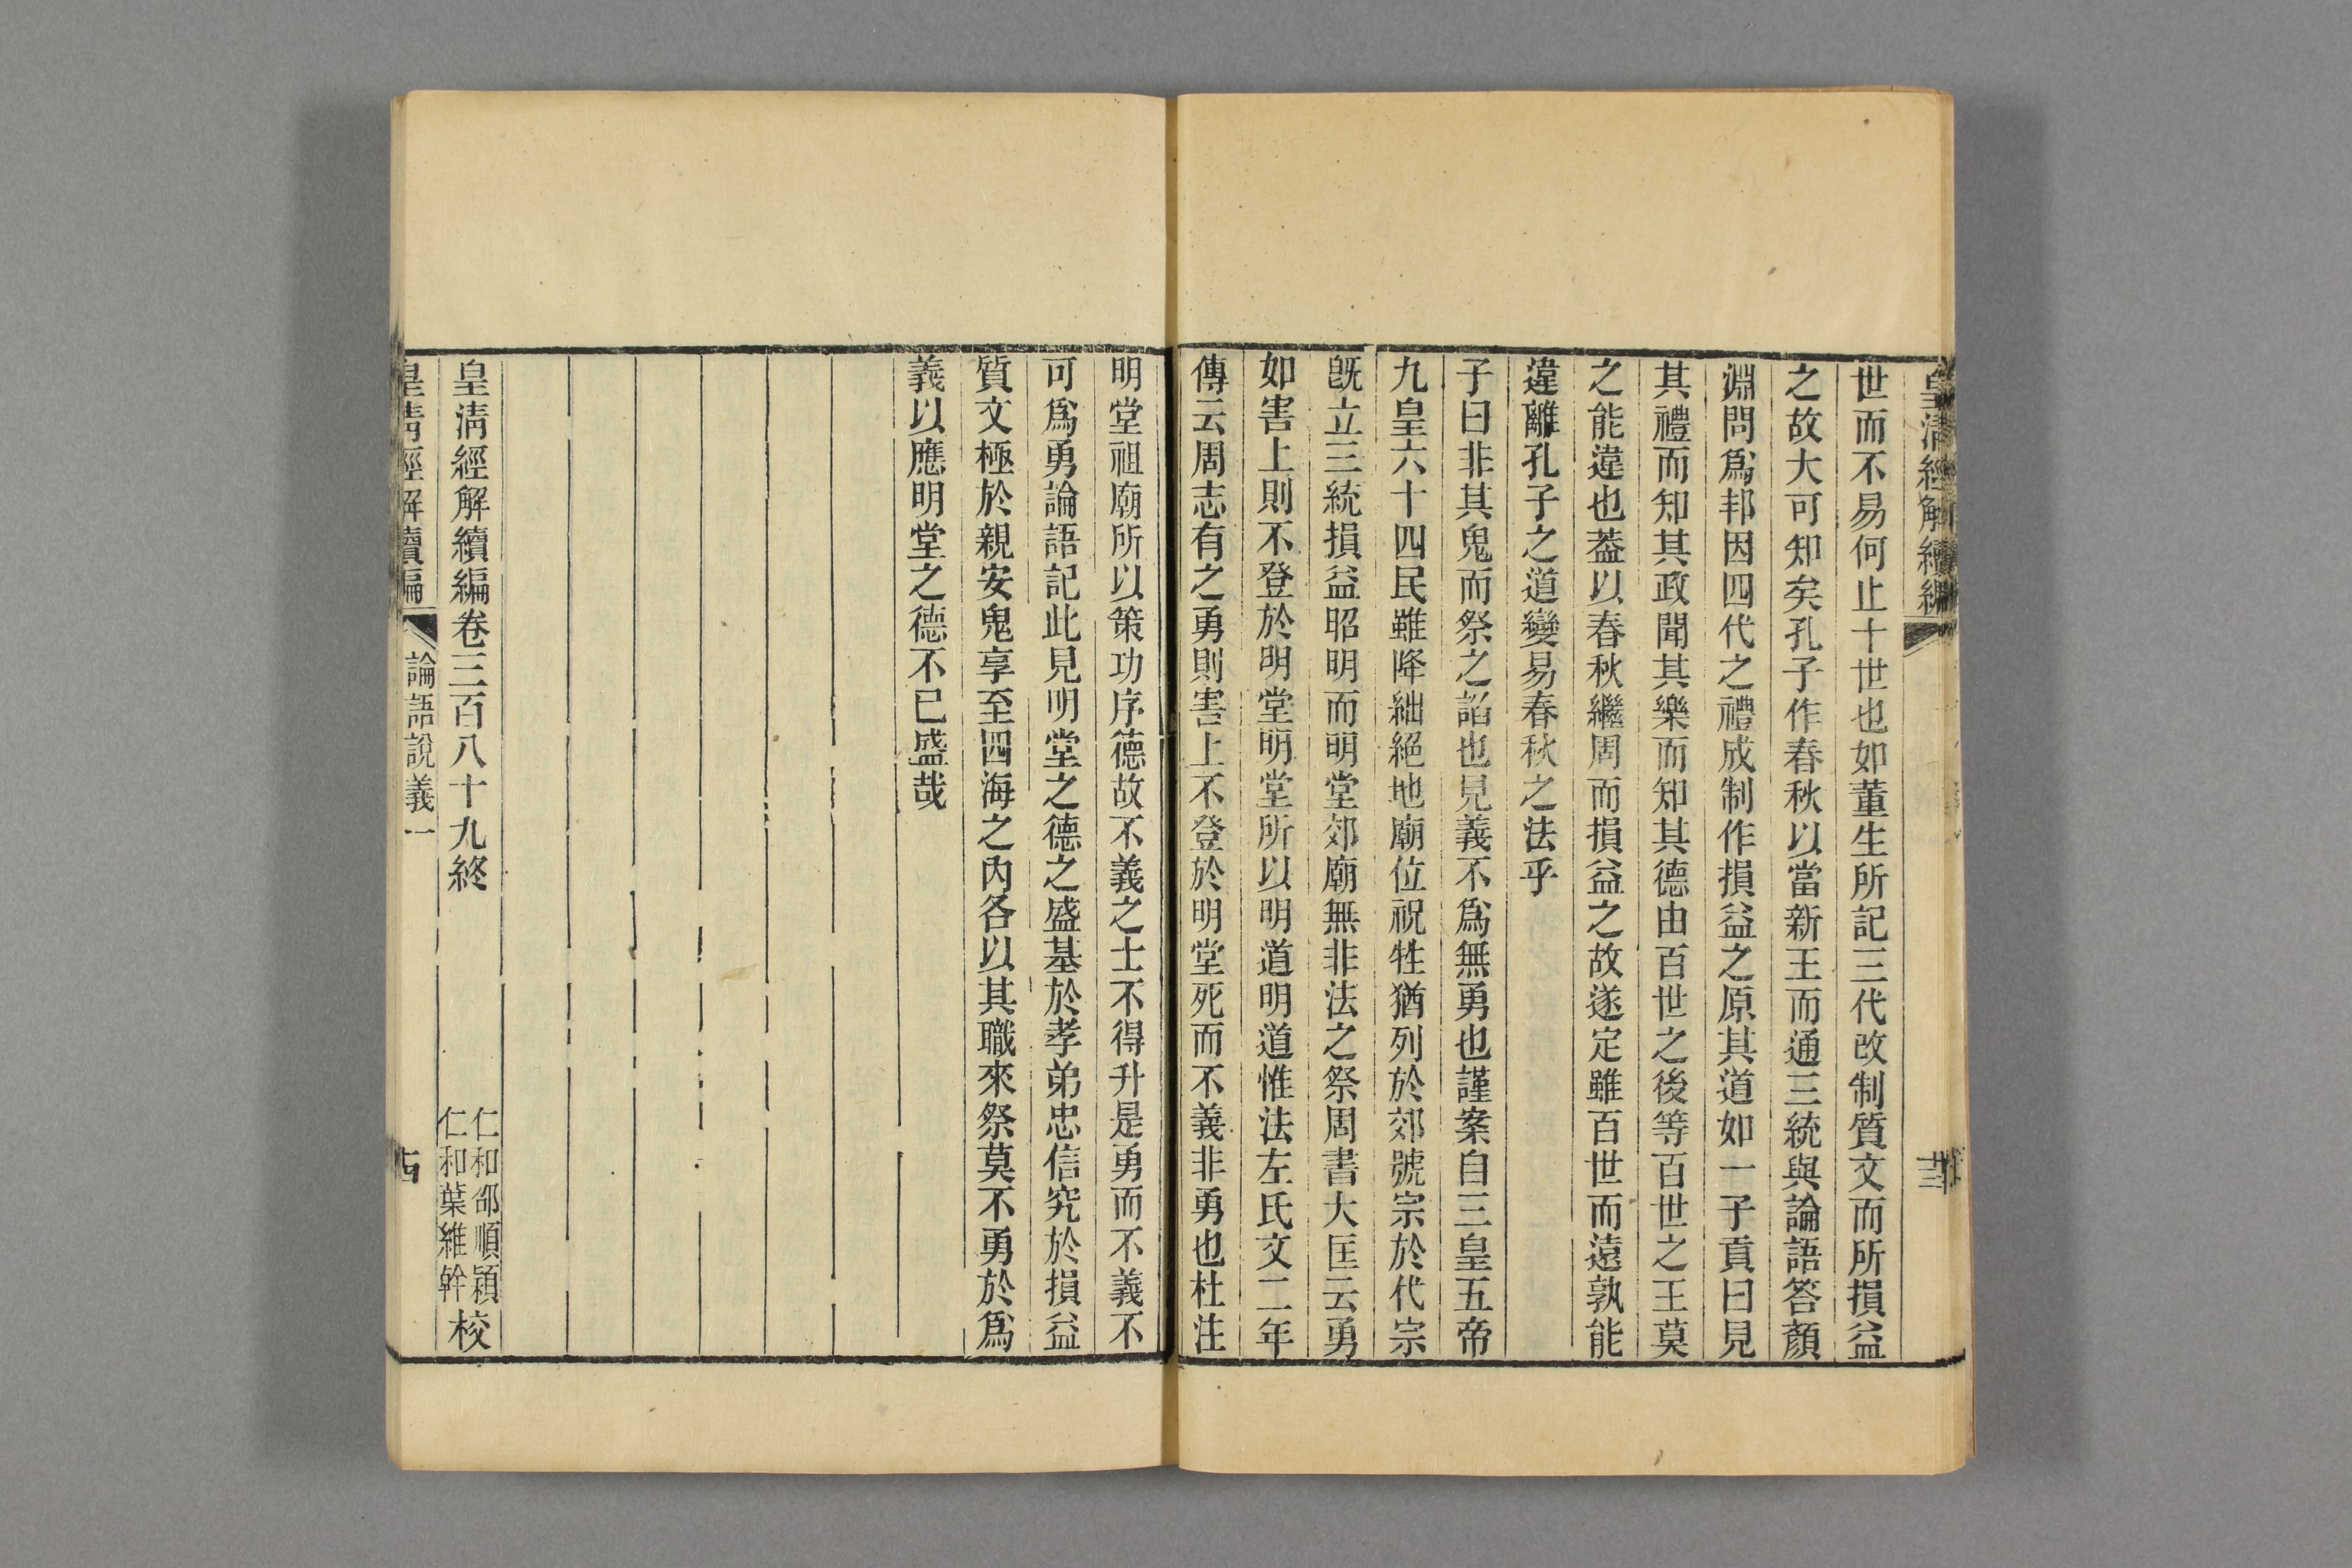 皇清經解續編
世而不易何止十世也如董生所記三代改制質文而所損益
之故大可知矣孔子作春秋以當新王而通三統與論語答顏
淵問爲邦因四代之禮成制作損益之原其道如一子貢曰見
其禮而知其政聞其樂而知其德由百世之後等百世之王莫
之能違也葢以春秋繼周而損益之故遂定雖百世而遠孰能
違離孔子之道變易春秋之法乎
子曰非其鬼而祭之諂也見義不爲無勇也謹案自三皇五帝
九皇六十四民雖降絀絕地廟位祝牲猶列於郊號宗於代宗
旣立三統損益昭明而明堂郊廟無非法之祭周書大匡云勇
如害上則不登於明堂明堂所以明道明道惟法左氏文二年
傳云周志有之勇則害上不登於明堂死而不義非勇也杜注
明堂祖廟所以策功序德故不義之士不得升是勇而不義不
可爲勇論語記此見明堂之德之盛基於孝弟忠信究於損益
質文極於親安鬼享至四海之內各以其職來祭莫不勇於爲
義以應明堂之德不已盛哉
皇清經解續編卷三百八十九終
仁和邵順穎
仁和葉維幹
校
皇清經解續編
論語說義一